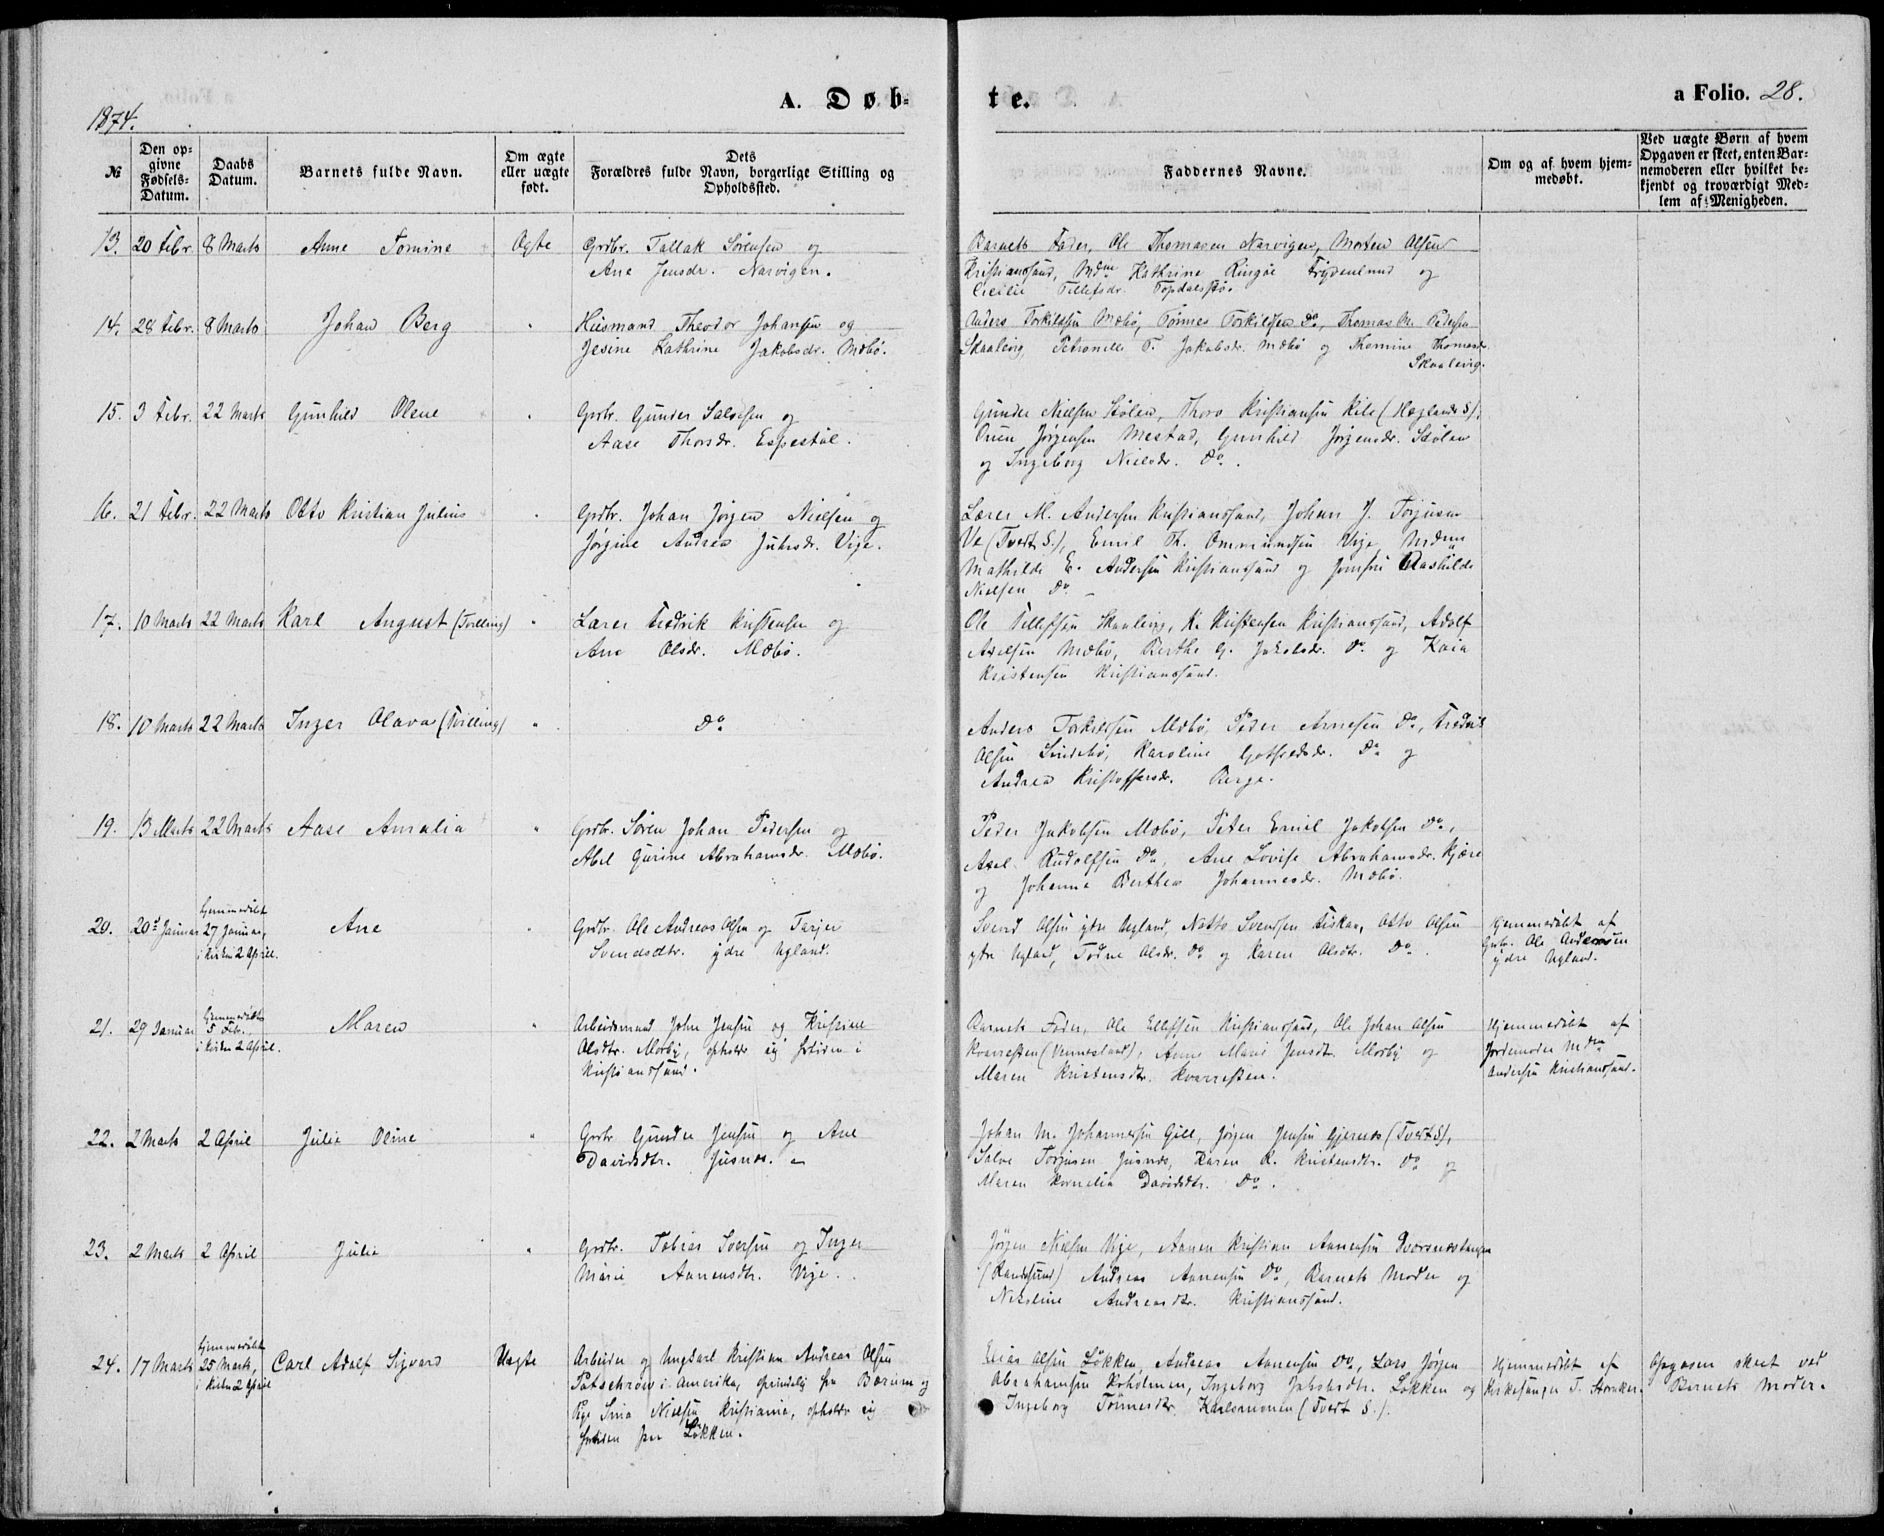 1874.
A. Døb-
te.
a Folio. 28.
№
Den op-
givne
Fødsels-
Datum.
Daabs
Datum.
Barnets fulde Navn.
Om ægte
eller uægte
født.
Dets
Forældres fulde Navn, borgerlige Stilling og
Opholdssted.
Faddernes Navne.
Om og af hvem hjem-
medøbt.
Ved uægte Børn af hvem
Opgaven er skeet, enten Bar-
nemoderen eller hvilket be-
kjendt og troværdigt Med-
lem af Menigheden.
13. 20 Febr. 8 Marts Anne Tomine Ægte
Grdbr. Tallak Sørensen og
Ane Jensdr. Narvigen.
Barnets Fader, Ole Thomasen Narvigen, Morten Olsen
Kristianssand, Mdme Kathrine Ringøe Frydenlund og
Cicilie Tellefsdr. Topdalsstø.
14. 28 Febr. 8 Marts Johan Berg "
Husmand Theodor Johansen og
Jesine Kathrine Jakobsdr. Mæbø.
Anders Torkildsen Mæbø, Tønnes Torkildsen Do, Thomas M. Pedersen
Skaalevig, Petronelle T. Jakobsdr. Mæbø og Thomine Thomasdr.
Skaalevig.
15. 3 Febr. 22 Marts Gunhild Olene "
Grdbr. Gunder Salvesen og
Aase Thorsdr. Espestøl.
Gunder Nielsen Stølen, Thore Kristiansen Kile (Hæglands S),
Ouen Jørgensen Mestad, Gunhild Jørgensdr. Stølen
og Ingeborg Nielsdr. Do.
16. 21 Febr. 22 Marts Otto Kristian Julius "
Grdbr. Johan Jørgen Nielsen og
Jørgine Andrea Juhsdr. Vige.
Lærer M. Andersen Kristianssand, Johan J. Torjusen
Ve (Tvedt S.), Emil Th. Ommundsen Vige, Mdme
Mathilde E. Andersen Kristianssand og Jomfru Raghilde
Nielsen Do
17. 10 Marts 22 Marts Karl August (Tvilling) "
Lærer Fredrik Kristensen og
Ane Olsdr. Mæbø.
Ole Tellefsen Skaalevig, K. Kristensen Kristianssand, Adolf
Axelsen Mæbø, Berthe G. Jakobsdr. Do. og Kaia
Kristensen Kristianssand.
18. 10 Marts 22 Marts Inger Olava (Tvilling) "
Do
Anders Torkildsen Mæbø, Peder Arnesen Do, Fredrik
Olsen Lindebø, Karoline Gotfredsdr. Do og
Andrea Kristoffersdr. Berge.
19. 13 Marts 22 Marts Aase Amalia "
Grdbr. Søren Johan Pedersen og
Abel Gurine Abrahamsdr. Mæbø.
Peder Jakobsen Mæbø, Peter Emil Jakobsen Do,
Axel Rudolfsen Do, Ane Lovise Abrahamsdr. Kjære
og Johanne Berthea Johannesdr. Mæbø.
20. 20de Januar
Hjemmedøbt
27 Januar,
i Kirken 2 April.
Ane "
Grdbr. Ole Andreas Olsen og Tarjer
Svendsdtr. ydre Ugland.
Svend Olsen ydre Ugland, Notto Svendsen Eiskan, Otto Olsen
ydre Ugland, Todne Olsdr. Do og Karen Olsdtr. Do.
Hjemmedøbt af
Grdbr. Ole Andersen
ydre Ugland.
21. 29 Januar
Hjemmedøbt
5 Febr.
i Kirken 2 April.
Maren "
Arbeidsmand John Jensen og Kristine
Olsdtr. Mosby, opholder sig fortiden i
Kristianssand.
Barnets Fader, Ole Ellefsen Kristianssand, Ole Johan Olsen
Kvarresten (Vennesland), Anne Marie Jensdtr. Mosby og
Maren Kristensdtr. Kvarresten.
Hjemmedøbt af
Jordemoder Mdm
Andersen Kristianssand.
22. 2 Marts 2 April Julie Oline "
Grdbr. Gunder Jensen og Ane
Davidsdtr. Justnes.
Johan M. Johannesen Gill, Jørgen Jensen Gjernes (Tvedt S),
Salve Torjusen Justnes, Karen K. Kristensdtr. Do og
Maren Kornelia Davidsdtr. Do.
23. 2 Marts 2 April Julie "
Grdbr. Tobias Iversen og Inger
Marie Aanensdtr. Vige.
Jørgen Nielsen Vige, Aanen Kristian Aanensen Dvorsnestangen
(Randesund) Andreas Aanensen Do, Barnets Moder og
Nikoline Andreasdtr. Kristianssand.
24. 17 Marts
Hjemmedøbt
25 Marts,
i Kirken 2 April
Carl Adolf Sigvard Uægte
Arbeider og Ungkarl Kristian Andreas Olsen
i Amerika, oprindelig fra Bærum og
Pige Sina Nielsen Kristiania, opholder sig
fortiden paa Løkken.
Elias Olsen Løkken, Andreas Aanensen Do, Lars Jørgen
Abrahamsen Kosholmen, Ingeborg Jakobsdtr. Løkken og
Ingeborg Tønnesdtr. Karlsmonen (Tvedt S.).
Hjemmedøbt af
Kirkesanger T. Stemker.
Opgaven skeet ved
Barnets Moder.